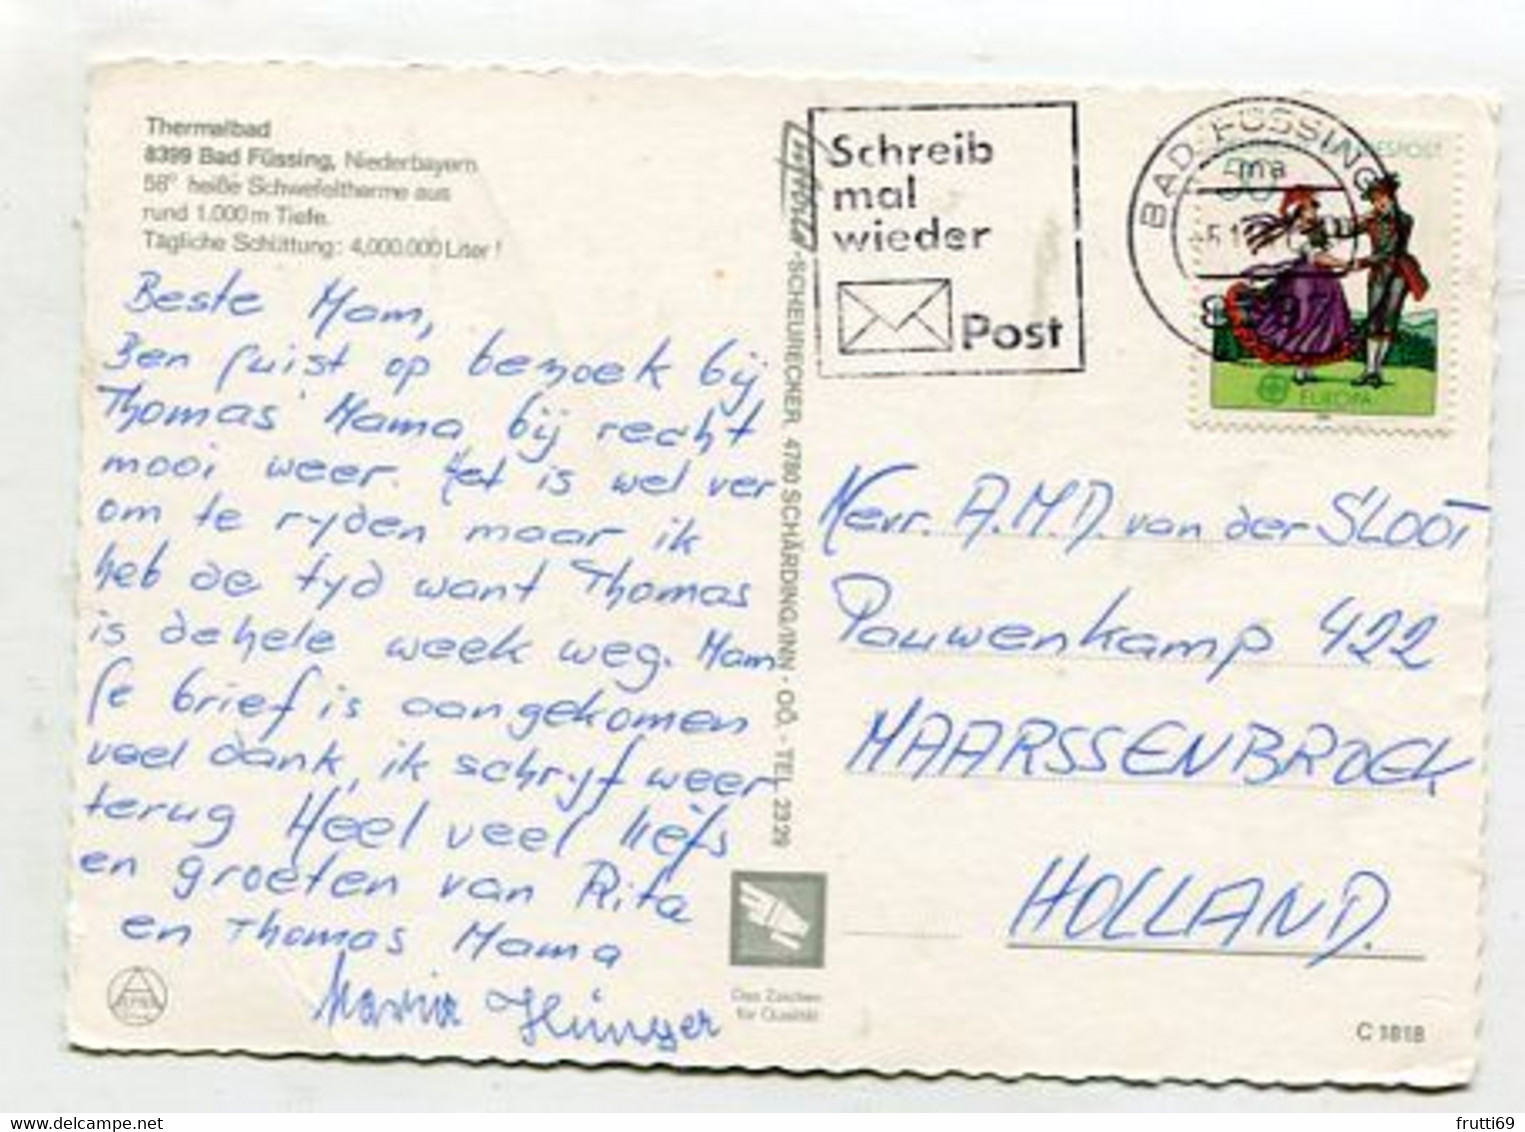 Thermalbad
8399 Bad Füssing, Niederbayern
58° heiße Schwefeltherme aus
rund 1.000 m Tiefe.
Tägliche Schüttung: 4,000.000 Liter!
Beste Mam,
Ben juist op bezoek bij
Thomas' Mama, bij recht
mooi weer. Het is wel ver
om te ryden maar ik
heb de tyd want Thomas
is dehele week weg. Mam
je brief is aangekomen
veel dank, ik schryf weer
terug Heel veel liefs
en groeten van Rita
en Thomas Mama
Maria
-SCHEURECKER, 4780 SCHÄRDING/INN · OÖ. · TEL. 2329
Das Zeichen
für Qualität
Schreib
mal
wieder
Post
BAD FÜSSING
ma
8397
EUROPA
Mevr. A.M.D. van der SLOOT
Pauwenkamp 422
MAARSSENBROEK
HOLLAND.
C 1818
frutti69